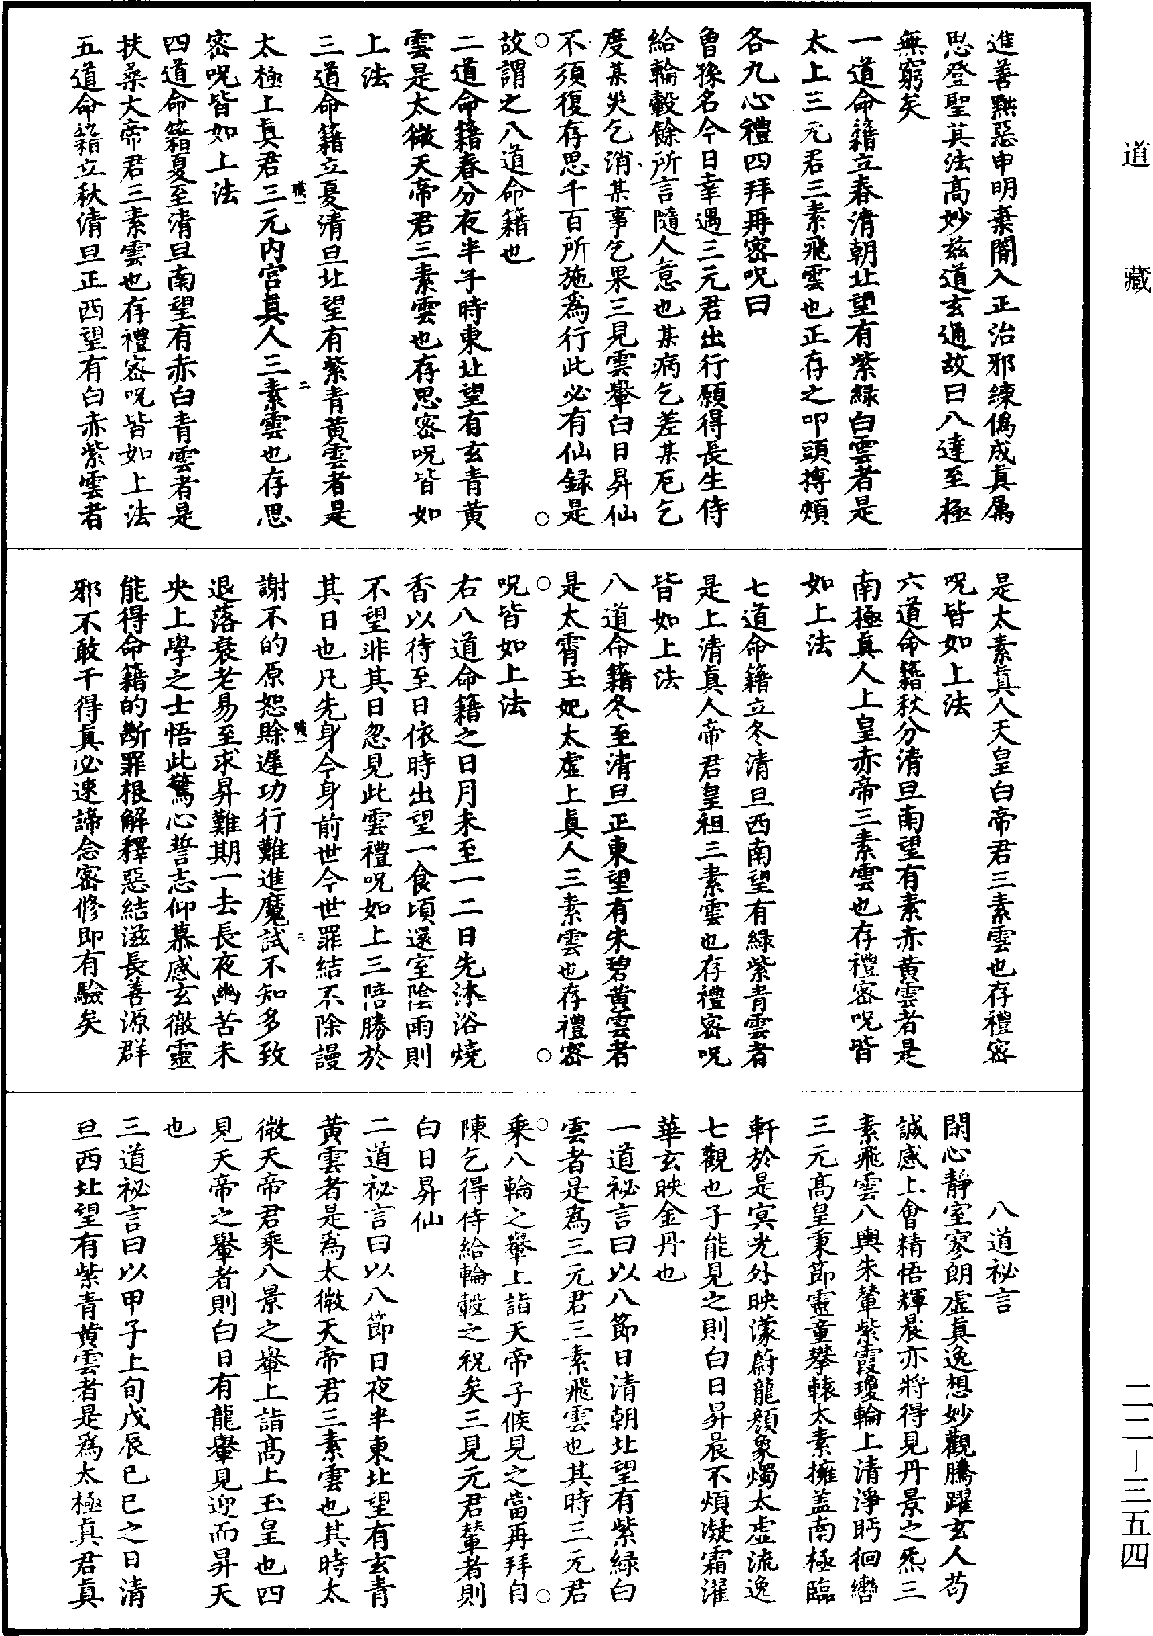 進善黜惡申明棄闇入正治邪練僞成真厲
思登聖其法高妙玆道玄通故曰八達至極
無窮矣
一道命籍立春清朝北望有紫綠白雲者是
太上三元君三素飛雲也正存之叩頭搏頰
各九心禮四拜再密呪曰
曾豫名今日幸遇三元君出行願得長生侍
給輪轂餘所言隨人意也某病乞差某厄乞
度某災乞消某事乞果三見雲轝白日昇仙
不須復存思千百所施爲行此必有仙錄是
故謂之八道命籍也
二道命籍春分夜半子時東北望有玄青黃
雲是太微天帝君三素雲也存思密呪皆如
上法
三道命籍立夏清旦北望有紫青黃雲者是
太極上真君三元內宮真人三素雲也存思
密呪皆如上法
四道命籍夏至清旦南望有赤白青雲者是
扶桑大帝君三素雲也存禮密呪皆如上法
五道命籍立秋清旦正西望有白赤紫雲者
是太素真人天皇白帝君三素雲也存禮密
呪皆如上法
六道命籍秋分清旦南望有素赤黃雲者是
南極真人上皇赤帝三素雲也存禮密呪皆
如上法
七道命籍立冬清旦西南望有綠紫青雲者
是上清真人帝君皇祖三素雲也存禮密呪
皆如上法
八道命籍冬至清旦正東望有朱碧黃雲者
是太霄玉妃太虛上真人三素雲也存禮密
呪皆如上法
右八道命籍之日月未至一二日先沐浴燒
香以待至日依時出望一食頃還室陰雨則
不望非其日忽見此雲禮呪如上三陪勝於
其日也凡先身今身前世今世罪結不除謾
謝不的原恕賒遲功行難進魔試不知多致
退落衰老易至求昇難期一去長夜幽苦未
央上學之士悟此驚心誓志仰慕感玄徹靈
能得命籍的斷罪根解釋惡結滋長善源群
邪不敢干得真必速諦念密修即有驗矣
八道祕言
閑心靜室寥朗虛真逸想妙觀騰躍玄人苟
誠感上會精悟輝晨亦將得見丹景之炁三
素飛雲八輿朱輦紫霞瓊輪上清淨眄徊轡
三元高皇秉節靈童攀轅太素擁蓋南極臨
軒於是冥光外映濛蔚龍顏象燭太虛流逸
七觀也子能見之則白日昇晨不煩凝霜濯
華玄映金丹也
一道祕言曰以八節日清朝北望有紫綠白
雲者是爲三元君三素飛雲也其時三元君
乘八輪之轝上詣天帝子候見之當再拜自
陳乞得侍給輪轂之祝矣三見元君輦者則
白日昇仙
二道祕言曰以八節日夜半東北望有玄青
黃雲者是爲太微天帝君三素雲也其時太
微天帝君乘八景之轝上詣高上玉皇也四
見天帝之轝者則白日有龍轝見迎而昇天
也
三道祕言曰以甲子上旬戊辰己巳之日清
旦西北望有紫青黃雲者是爲太極真君真
道藏
二二—三五四